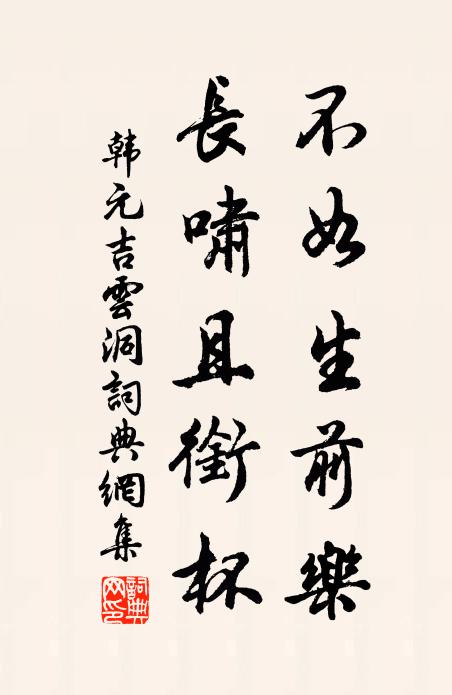 不如生前樂
長嘯且銜杯
韩元吉雲洞詞典網集
詞典网印